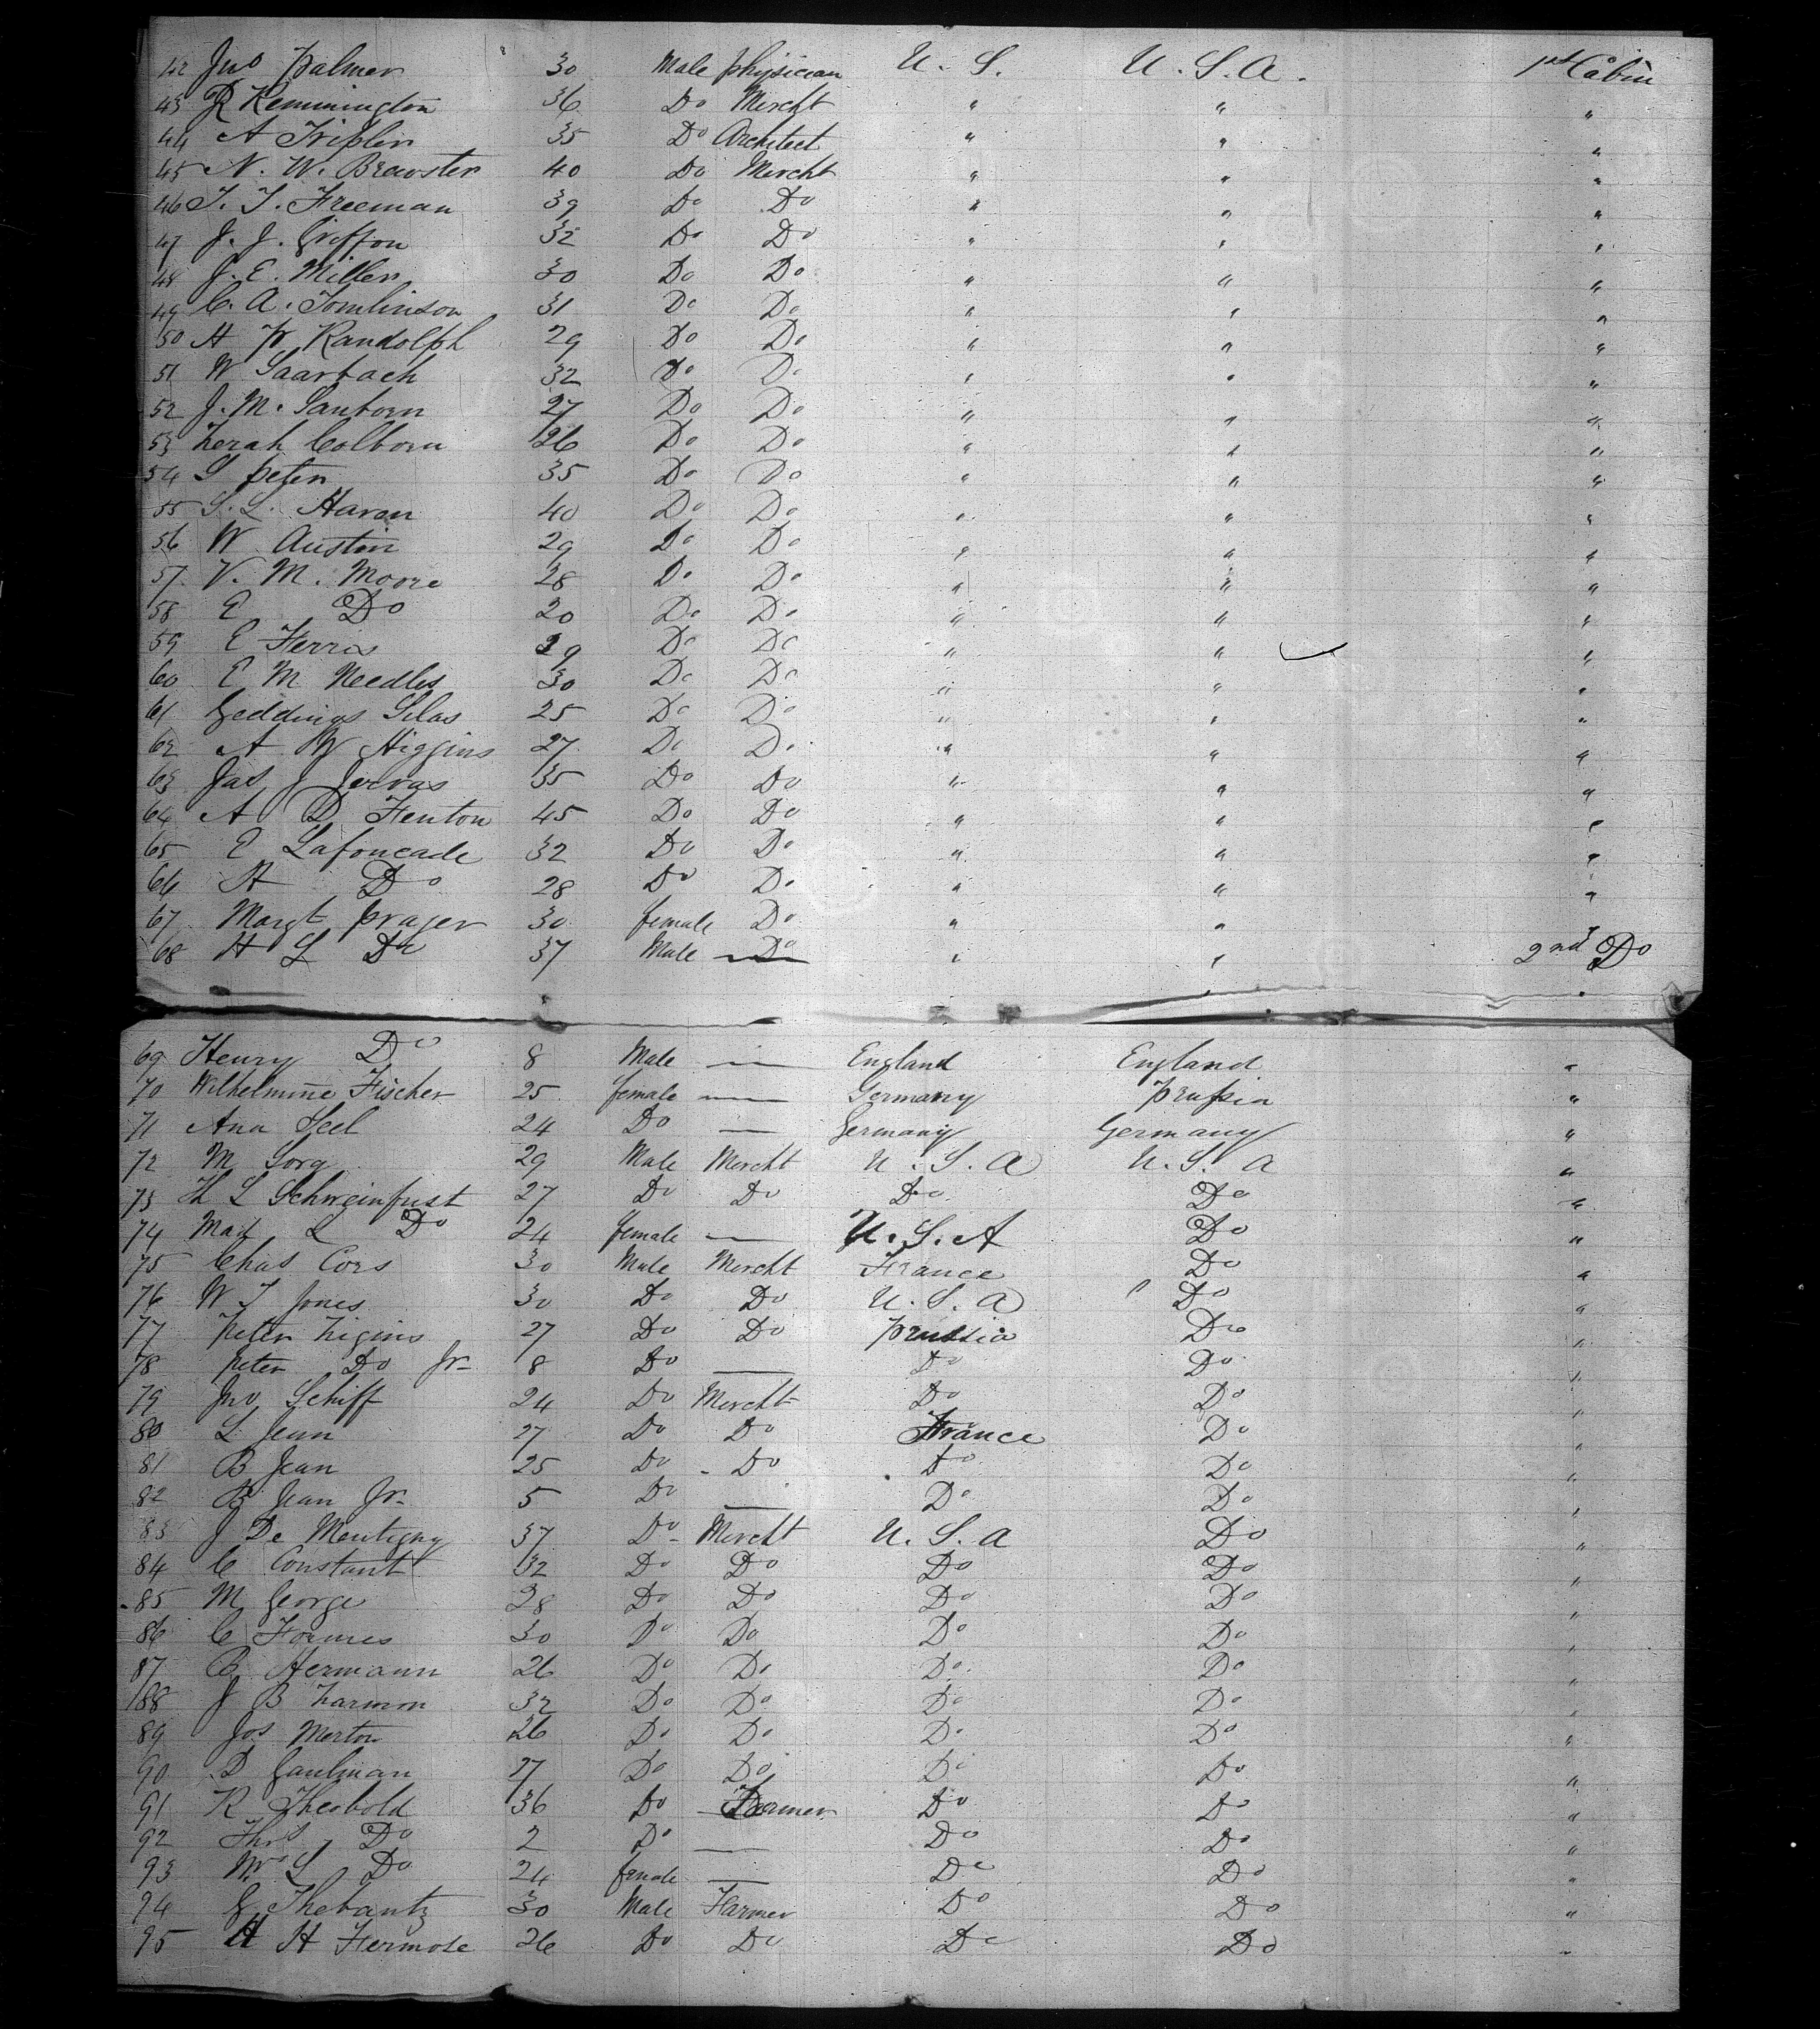 42 Jno Palmer 30 Male physician U. S. U. S. A. 1st Cabin
43 R Remmington 36 Do Mercht " " "
44 A Triplin 35 Do Architect " " "
45 N. W. Brewster 40 Do Mercht " " "
46 T. T. Freeman 39 Do Do " " "
47 J. J. Griffon 32 Do Do " " "
48 J. E. Miller 30 Do Do " " "
49 C. A. Tomlinson 31 Do Do " " "
50 H W Randolph 29 Do Do " " "
51 W Saarbach 32 Do Do " " "
52 J. M. Sanborn 27 Do Do " " "
53 Zerah Colborn 26 Do Do " " "
54 S peter 35 Do Do " " "
55 S. L. Haven 40 Do Do " " "
56 W Austin 29 Do Do " " "
57 V. M. Moore 28 Do Do " " "
58 E Do 20 Do Do " " "
59 E Ferris 29 Do Do " " "
60 E M Needles 30 Do Do " " "
61 Geddings Silas 25 Do Do " " "
62 A W Higgins 27 Do Do " " "
63 Jas J Jervas 35 Do Do " " "
64 A D Fenton 45 Do Do " " "
65 E Lafoucade 32 Do Do " " "
66 A Do 28 Do Do " " "
67 Margt prager 30 female Do " " "
68 H L Do 37 Male Do " " 2nd Do
69 Henry Do 8 Male — England England "
70 Wilhelmine Fischer 25 female — Germany Prussia "
71 Ana Seel 24 Do — Germany Germany "
72 M Sorg 29 Male Mercht U. S. A U. S. A "
73 Th L Schweinfust 27 Do Do Do Do "
74 Mad L Do 24 female — U. S. A Do "
75 Chas Cors 30 Male Mercht France Do "
76 W T Jones 30 Do Do U. S. A Do "
77 Peter Zigins 27 Do Do Prussia Do "
78 Peter Do Jr 8 Do — Do Do "
79 Jno Schiff 24 Do Mercht Do Do "
80 L Jean 27 Do Do France Do "
81 B Jean 25 Do Do Do Do "
82 B Jean Jr 5 Do — Do Do "
83 J De Montigny 37 Do Mercht U. S. A Do "
84 C Constant 32 Do Do Do Do "
85 M George 28 Do Do Do Do "
86 C Formes 30 Do Do Do Do "
87 C Hermann 26 Do Do Do Do "
88 J B Harmon 32 Do Do Do Do "
89 Jos Merton 26 Do Do Do Do "
90 D Gaulman 27 Do Do Do Do "
91 R Theobold 36 Do Farmer Do Do "
92 Thos Do 2 Do — Do Do "
93 Mrs L Do 24 female — Do Do "
94 G Thebantz 30 Male Farmer Do Do "
95 H H Fermose 26 Do Do Do Do "